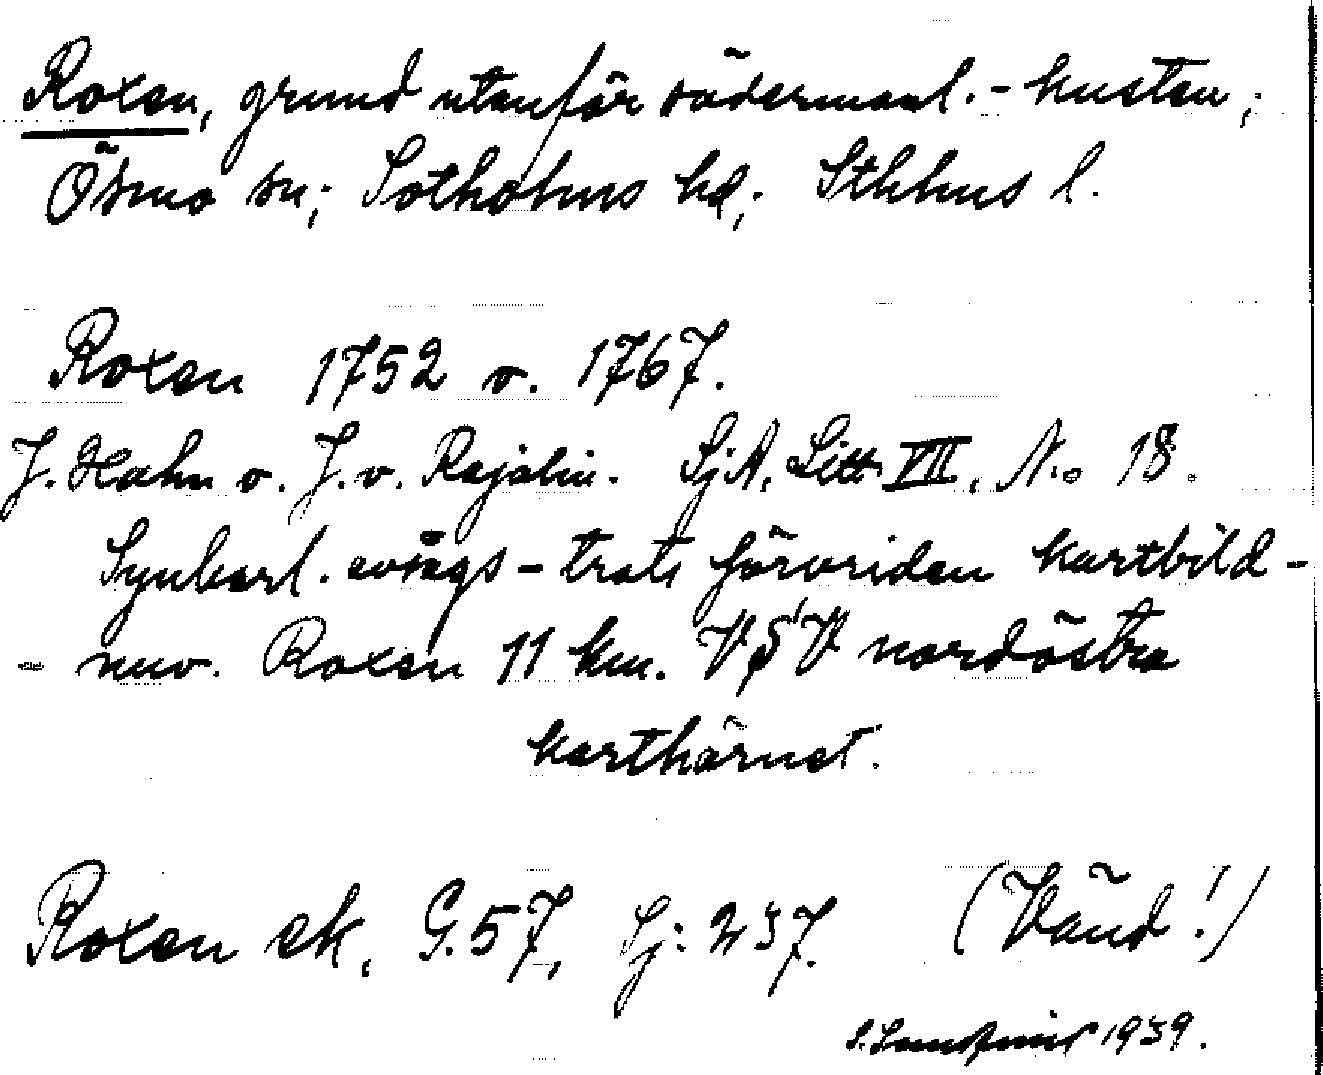 Roxen, grund utanför södermanl.-kusten;
Ösmo sn; Sotholms hd; Sthlms l.
Roxen 1752 o. 1767.
J. Hahn o. J. v. Rajalin. SjA, Litt. VIII, No 18.
Synbarl. avsågs - trots förvriden kartbild -
- nuv. Roxen 11 km. VSV nordöstra
karthörnet.
Roxen ek. G.57, Sj: 237. (Vänd!)
1939.